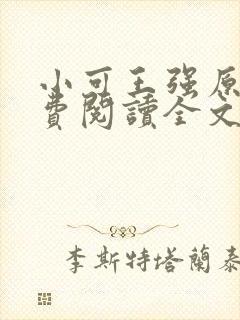 小可王强原
費閱讀全文
李斯特塔蘭泰